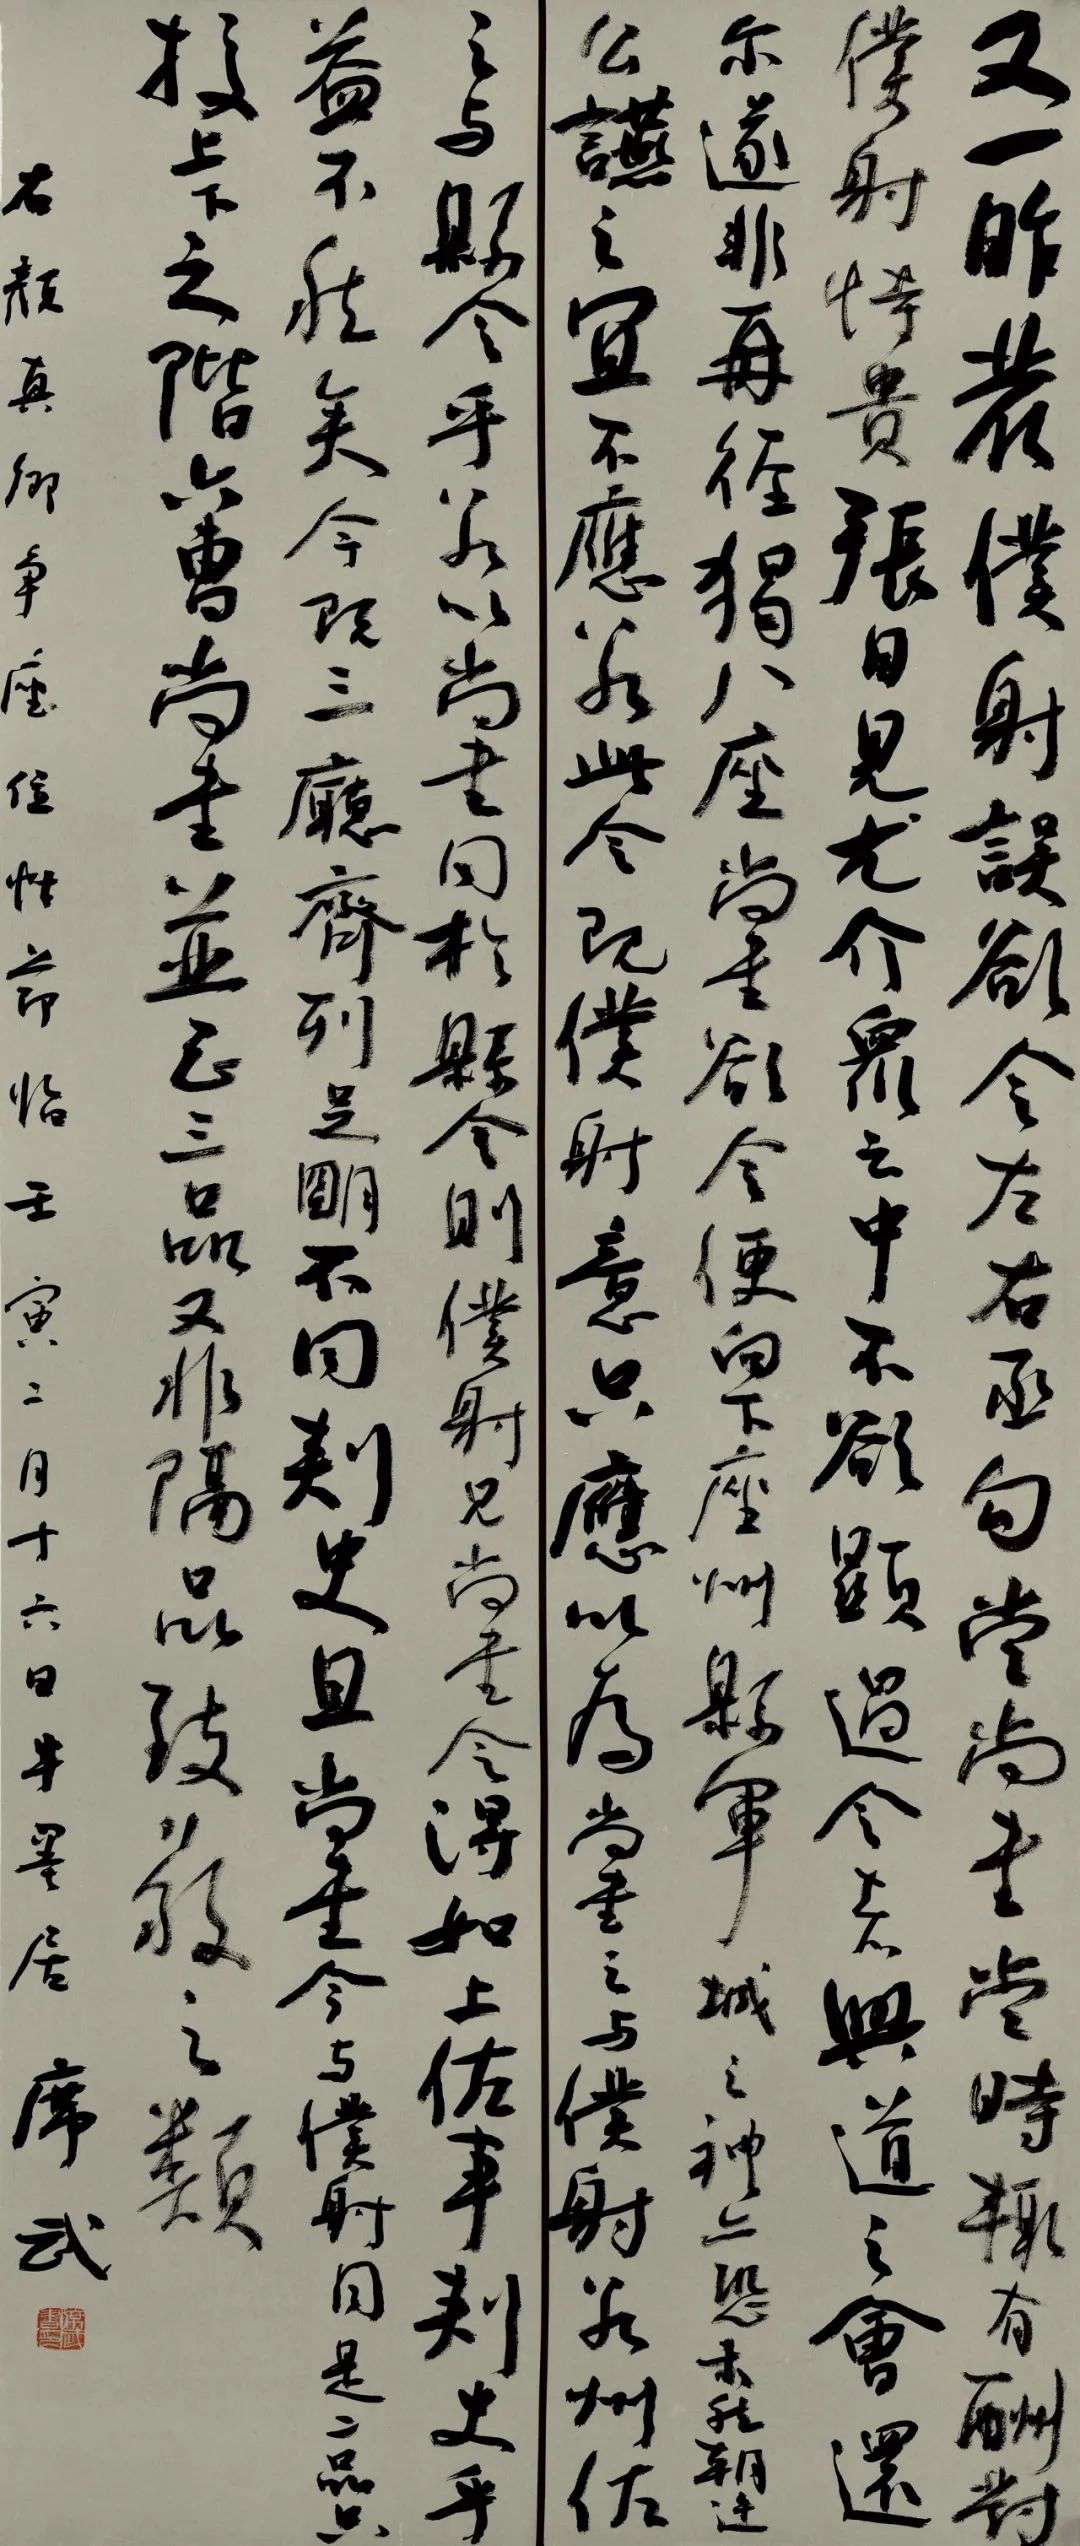 又一昨裴僕射誤欲令左右丞勾當尚書當時輒有酬對
僕射恃貴張目見尤介衆之中不欲顯過今者興道之會還
尔遂非再徑猲八座尚書欲令便向下座州縣軍城之禮亦恐未然朝廷
公讌之宜不應若此今既僕射意只應以為尚書之与僕射若州佐
之与縣令乎若以尚書同於縣令則僕射見尚書令得如上佐事刾史乎
益不然矣今既三廳齊列足明不同刾史且尚書令与僕射同是二品只
挍上下之階六曹尚書並正三品又非隔品致敬之類
右顏真卿争座位性節临壬寅二月十六日牛墨居 席武